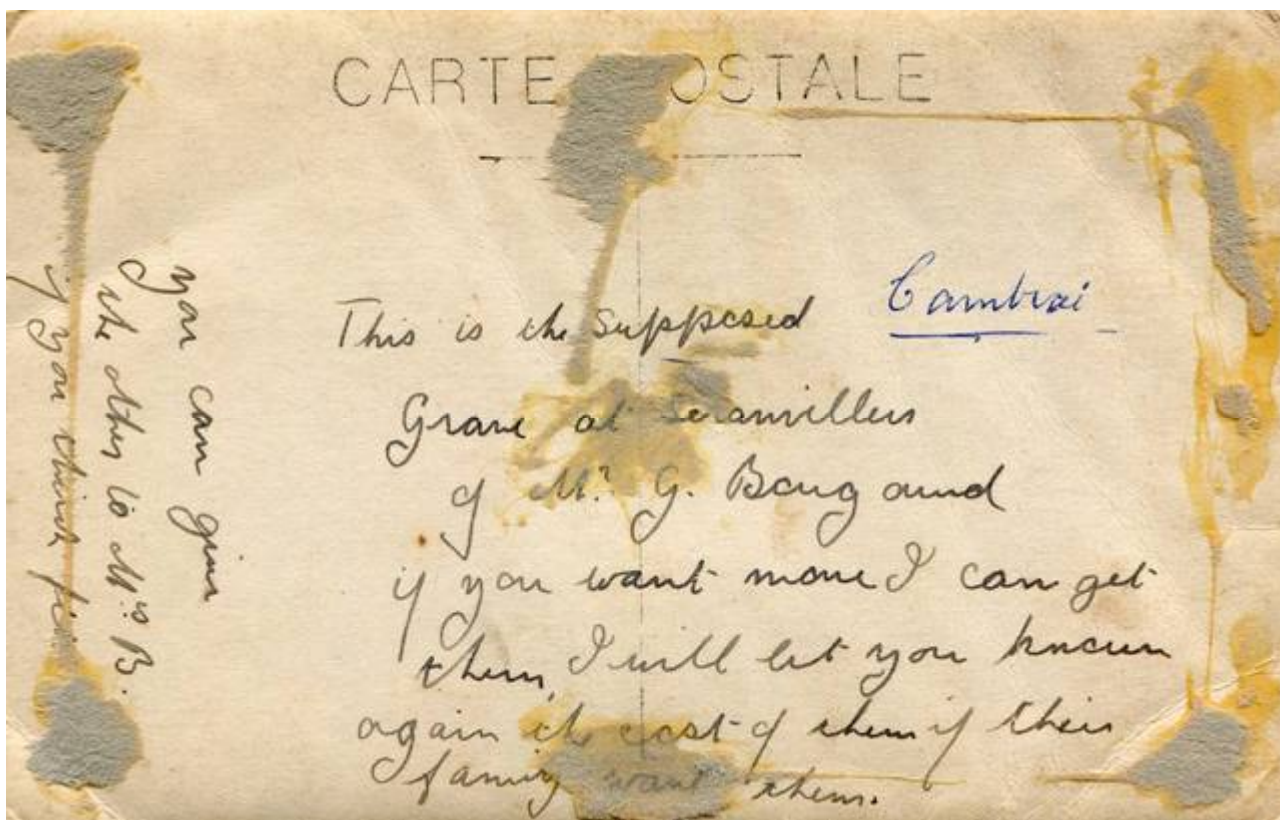 CARTE POSTALE
Cambrai
This is the supposed
Grave at Seranvillers
of Mr. G.
if you want more I can get
them, I will let you known
again the cost of them if their
family want them.
you can give
the other to Mrs B.
if you think fit